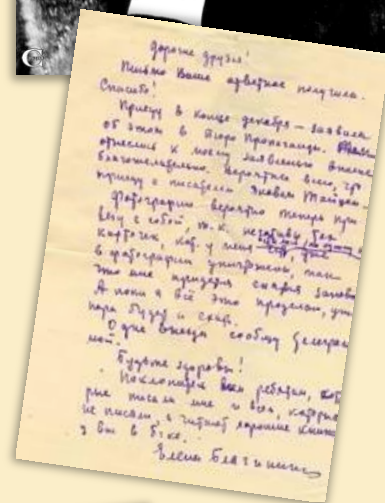 Дорогие друзья!
Письмо Ваше ответное получила.
Спасибо!
Приеду в конце декабря – заявила
об этом в Бюро Пропаганды.
отнеслись к моему заявлению вполне
благожелательно. Вероятнее всего, что
приеду с писателем Яковом Тайцем.
Фотографию вероятно теперь при
везу с собой, т.к. негативы тех
карточек, кот. у меня
в фотографии уничтожены, так
что мне придется сняться заново
А пока я всё это проделаю, уж
пора будет и
О дне выезда сообщу телеграм
мой.
Будьте здоровы!
Поклонитесь всем ребятам, кот
рые писали мне и всем, которые
не писали, а читают хорошие книжки
у вас в б-ке.
Елена Благинина